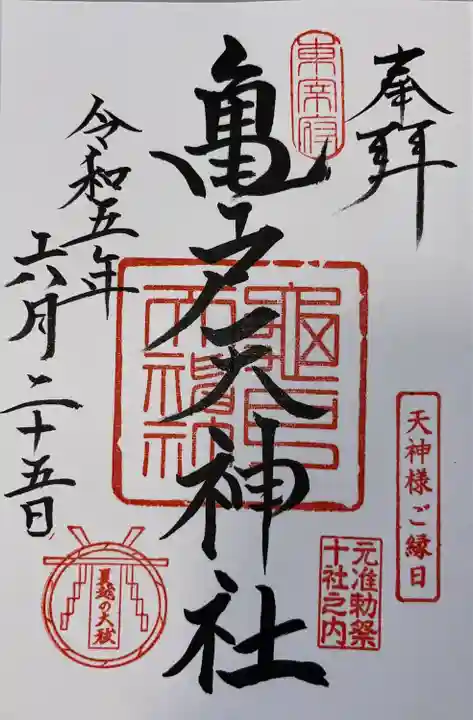 奉拝
東宰府
亀戸天神社
天神様ご縁日
元准勅祭
十社之内
令和五年
六月二十五日
夏越の大祓